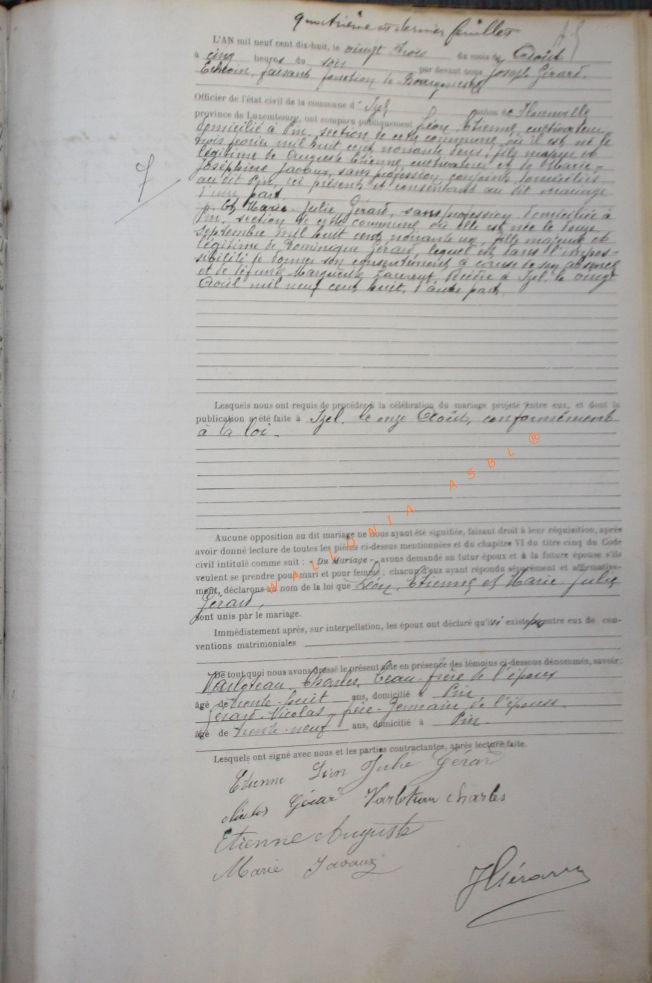 quatrième et dernier feuillet
L'AN mil neuf cent dix-huit, le vingt trois du mois de Août
à cinq heures du soir par devant nous Joseph Gérard
Echevin, faisant fonction de Bourgmestre
Officier de l'état civil de la commune d'Izel canton de Florenville
province de Luxembourg, ont comparu publiquement Léon Etienne, cultivateur
domicilié à Pin, section de cette commune, où il est né le
trois mil huit cent nonante deux, fils majeur et
légitime de Auguste Etienne, cultivateur et de Marie-
Joséphine Javaux, sans profession, conjoints, domiciliés
au dit Pin, ici présents et consentant au dit mariage
d'une part,
7
Et Marie Julie Gérard, sans profession, domiciliée à
Pin, section de cette commune où elle est née le douze
Septembre mil huit cent nonante un, fille majeure et
légitime de Dominique Gérard, lequel est dans l'impos-
sibilité de donner son consentement à cause de son absence
et de défunte Marguerite Laurent, décédée à Izel, le vingt
Août mil neuf cent huit, d'autre part,
Lesquels nous ont requis de procéder à la célébration du mariage projeté entre eux, et dont la
publication a été faite à Izel, le onze Août, conformément
à la loi.
WALLONIA ASBL ®
Aucune opposition au dit mariage ne nous ayant été signifiée, faisant droit à leur réquisition, après
avoir donné lecture de toutes les pièces ci-dessus mentionnées et du chapitre VI du titre cinq du Code
civil intitulé comme suit : « Du Mariage » avons demandé au futur époux et à la future épouse s'ils
veulent se prendre pour mari et pour femme ; chacun d'eux ayant répondu séparément et affirmative-
ment, déclarons au nom de la loi que Léon Etienne et Marie Julie
Gérard,
sont unis par le mariage.
Immédiatement après, sur interpellation, les époux ont déclaré qu'il existe pas entre eux de con-
ventions matrimoniales
De tout quoi nous avons dressé le présent acte en présence des témoins ci-dessous dénommés, savoir :
Varloteau Charles, beau-frère de l'époux
âgé de trente-huit ans, domicilié à Pin
Gérard Nicolas, frère Germain de l'épouse
âgé de trente-neuf ans, domicilié à Pin
Lesquels ont signé avec nous et les parties contractantes, après lecture faite.
Etienne Léon Julie Gérard
Nicolas Gérard Varloteau Charles
Etienne Auguste
Marie Javaux
J Gérard